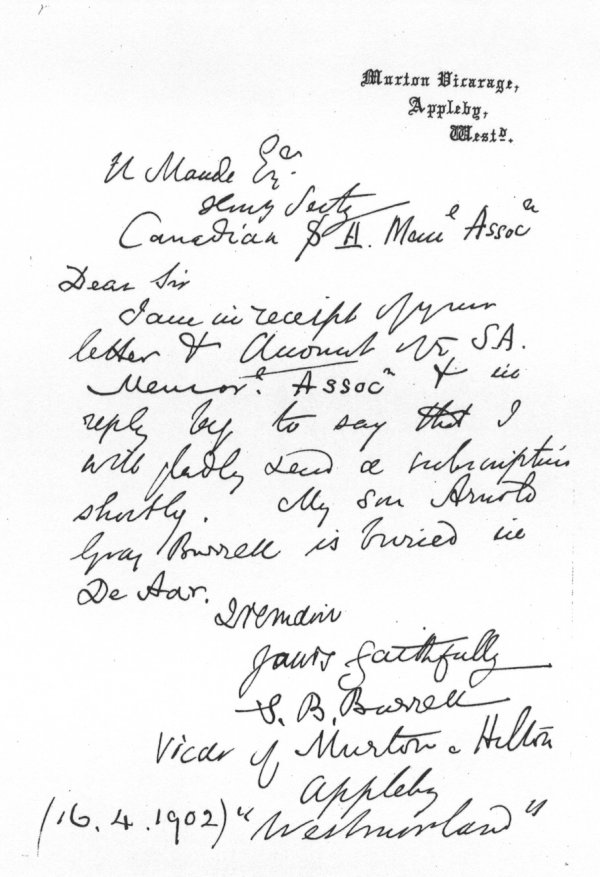 Murton Vicarage,
Appleby,
Westd.
Maude Esqr.
Hony Secty
Canadian & A. Meml Assocn
Dear Sir
I am in receipt of your
letter & Account of SA.
Memorl. Assocn & in
reply beg to say that I
will gladly send a subscription
shortly. My son Arnold
Gray Burrell is buried in
De Aar.
I remain
yours faithfully
S. B. Burrell
Vicar of Murton c Hilton
Appleby
(16.4.1902) "Westmorland"